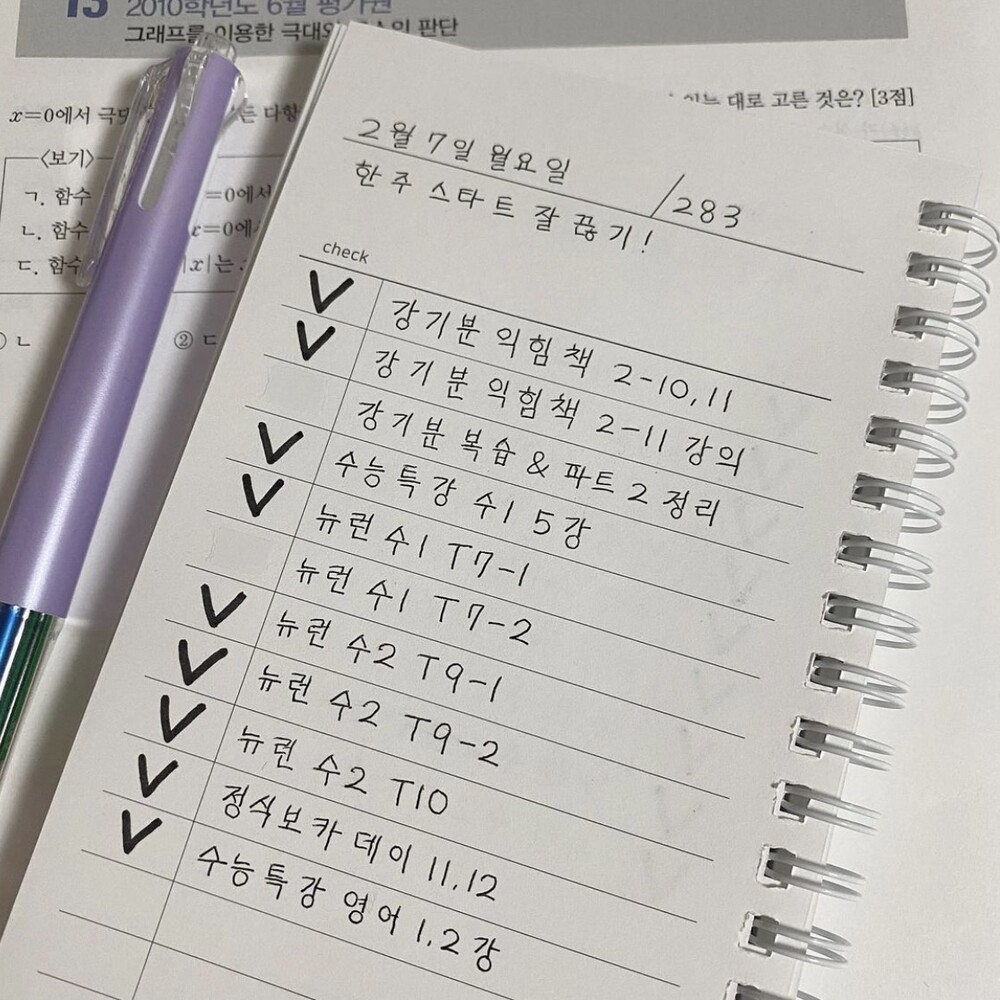 13 2010학년도 6월 평가원
그래프를 이용한 극대와 판단
x=0에서 다항
대로 고른 것은? [3점]
<보기>
ㄱ. 함수 =0에서
ㄴ. 함수 x=0에
ㄷ. 함수 |x|는
ㄴ ② ㄷ
2월 7일 월요일 /283
한 주 스타트 잘 끊기!
check
✓ 강기분 익힘책 2-10,11
✓ 강기분 익힘책 2-11 강의
강기분 복습 & 파트 2 정리
✓ 수능특강 수1 5강
✓ 뉴런 수1 T7-1
뉴런 수1 T7-2
✓ 뉴런 수2 T9-1
✓ 뉴런 수2 T9-2
✓ 뉴런 수2 T10
✓ 정식보카 데이 11.12
✓ 수능특강 영어 1.2강